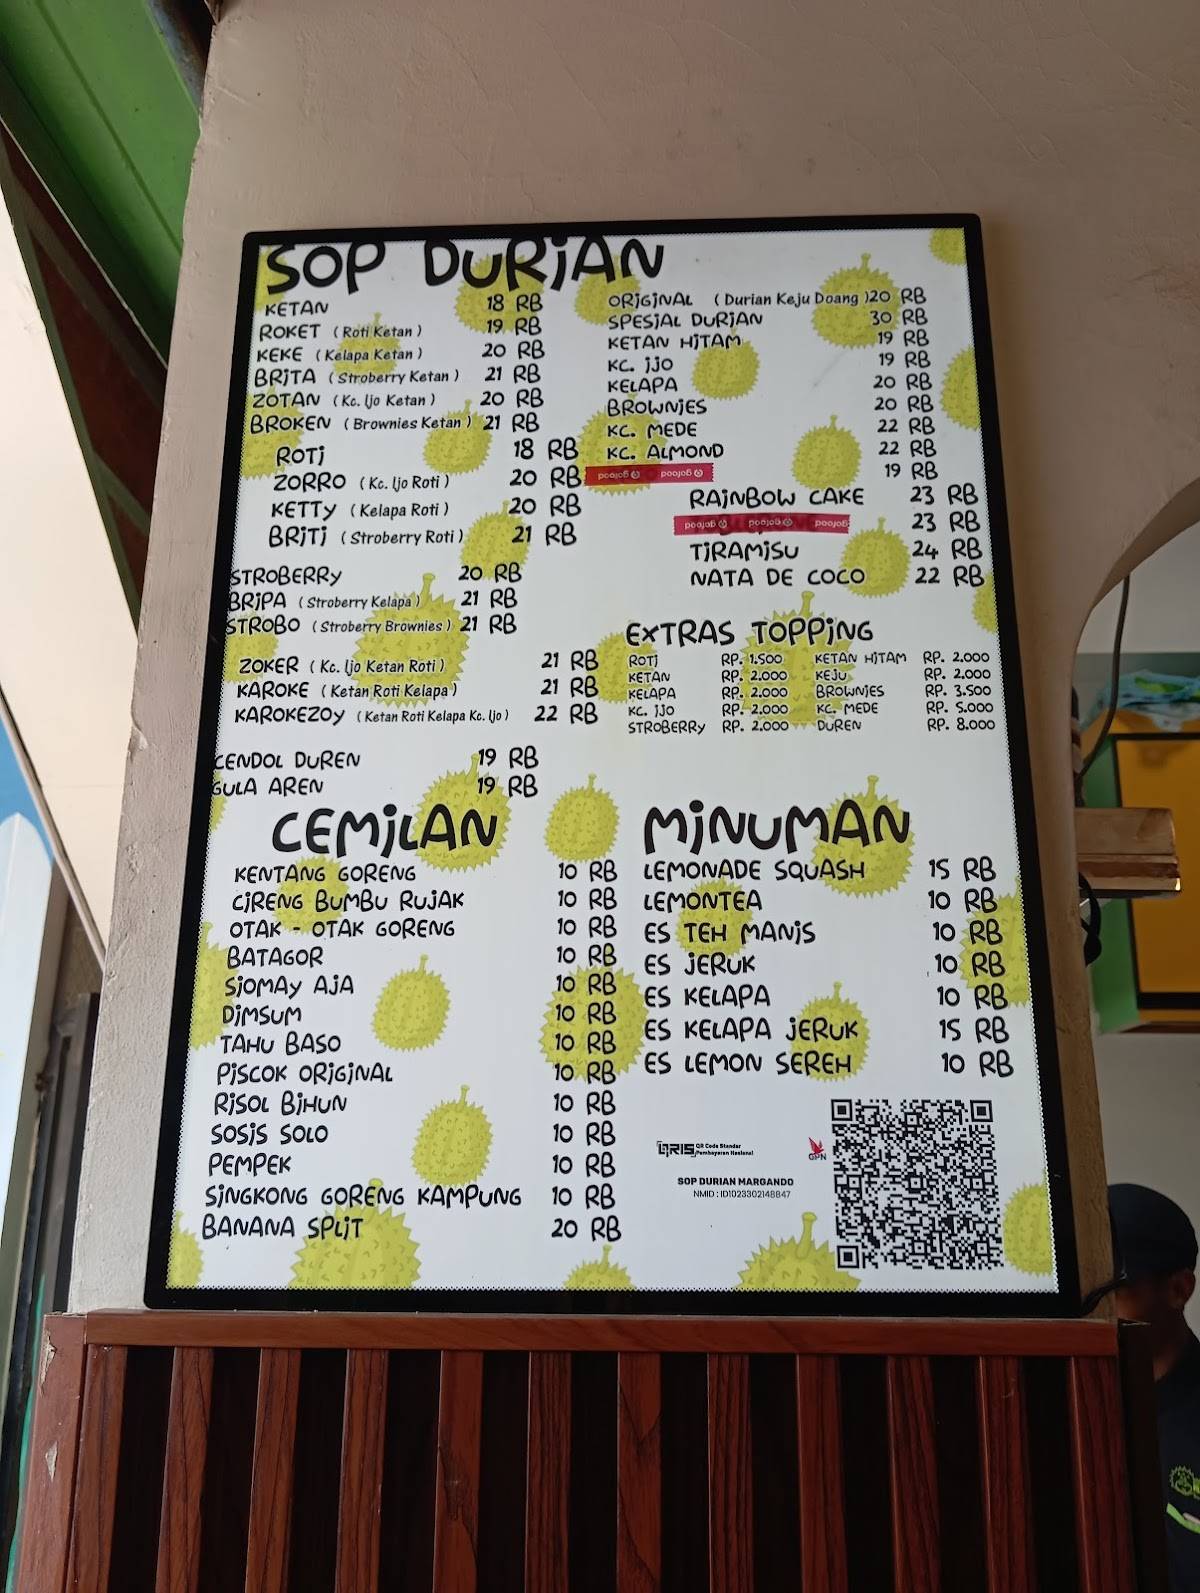 SOP DURIAN
KETAN 18 RB
ROKET ( Roti Ketan ) 19 RB
KEKE ( Kelapa Ketan ) 20 RB
BRITA ( Stroberry Ketan ) 21 RB
ZOTAN ( Kc. Ijo Ketan ) 20 RB
BROKEN ( Brownies Ketan ) 21 RB
ROTI 18 RB
ZORRO ( Kc. Ijo Roti ) 20 RB
KETTY ( Kelapa Roti ) 20 RB
BRITI ( Stroberry Roti ) 21 RB
STROBERRY 20 RB
BRIPA ( Stroberry Kelapa ) 21 RB
STROBO ( Stroberry Brownies ) 21 RB
ZOKER ( Kc. Ijo Ketan Roti ) 21 RB
KAROKE ( Ketan Roti Kelapa ) 21 RB
KAROKEZOY ( Ketan Roti Kelapa Kc. Ijo ) 22 RB
CENDOL DUREN 19 RB
GULA AREN 19 RB
ORIGINAL ( Durian Keju Doang ) 20 RB
SPESIAL DURIAN 30 RB
KETAN HITAM 19 RB
KC. IJO 19 RB
KELAPA 20 RB
BROWNIES 20 RB
KC. MEDE 22 RB
KC. ALMOND 22 RB
gofood gofood 19 RB
RAINBOW CAKE 23 RB
gofood gofood gofood 23 RB
TIRAMISU 24 RB
NATA DE COCO 22 RB
EXTRAS TOPPING
ROTI RP. 1.500 KETAN HITAM RP. 2.000
KETAN RP. 2.000 KEJU RP. 2.000
KELAPA RP. 2.000 BROWNIES RP. 3.500
KC. IJO RP. 2.000 KC. MEDE RP. 5.000
STROBERRY RP. 2.000 DUREN RP. 8.000
CEMILAN
KENTANG GORENG 10 RB
CIRENG BUMBU RUJAK 10 RB
OTAK - OTAK GORENG 10 RB
BATAGOR 10 RB
SIOMAY AJA 10 RB
DIMSUM 10 RB
TAHU BASO 10 RB
PISCOK ORIGINAL 10 RB
RISOL BIHUN 10 RB
SOSIS SOLO 10 RB
PEMPEK 10 RB
SINGKONG GORENG KAMPUNG 10 RB
BANANA SPLIT 20 RB
MINUMAN
LEMONADE SQUASH 15 RB
LEMONTEA 10 RB
ES TEH MANIS 10 RB
ES JERUK 10 RB
ES KELAPA 10 RB
ES KELAPA JERUK 15 RB
ES LEMON SEREH 10 RB
QRIS QR Code Standar
Pembayaran Nasional
GPN
SOP DURIAN MARGANDO
NMID : ID1023302148847